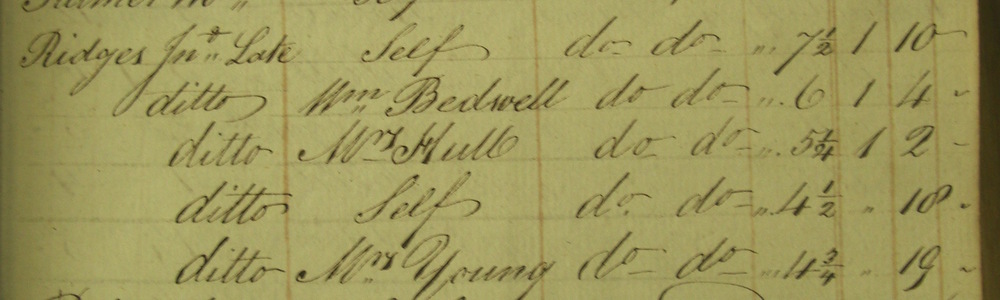 Ridges Jnº Late Self do do „ 7½ 1 10 -
ditto Wm Bedwell do do „ 6 1 4 -
ditto Mrs Hull do do „ 5¼ 1 2 -
ditto Self do do „ 4½ „ 18 -
ditto Mrs Young do do „ 4¾ „ 19 -